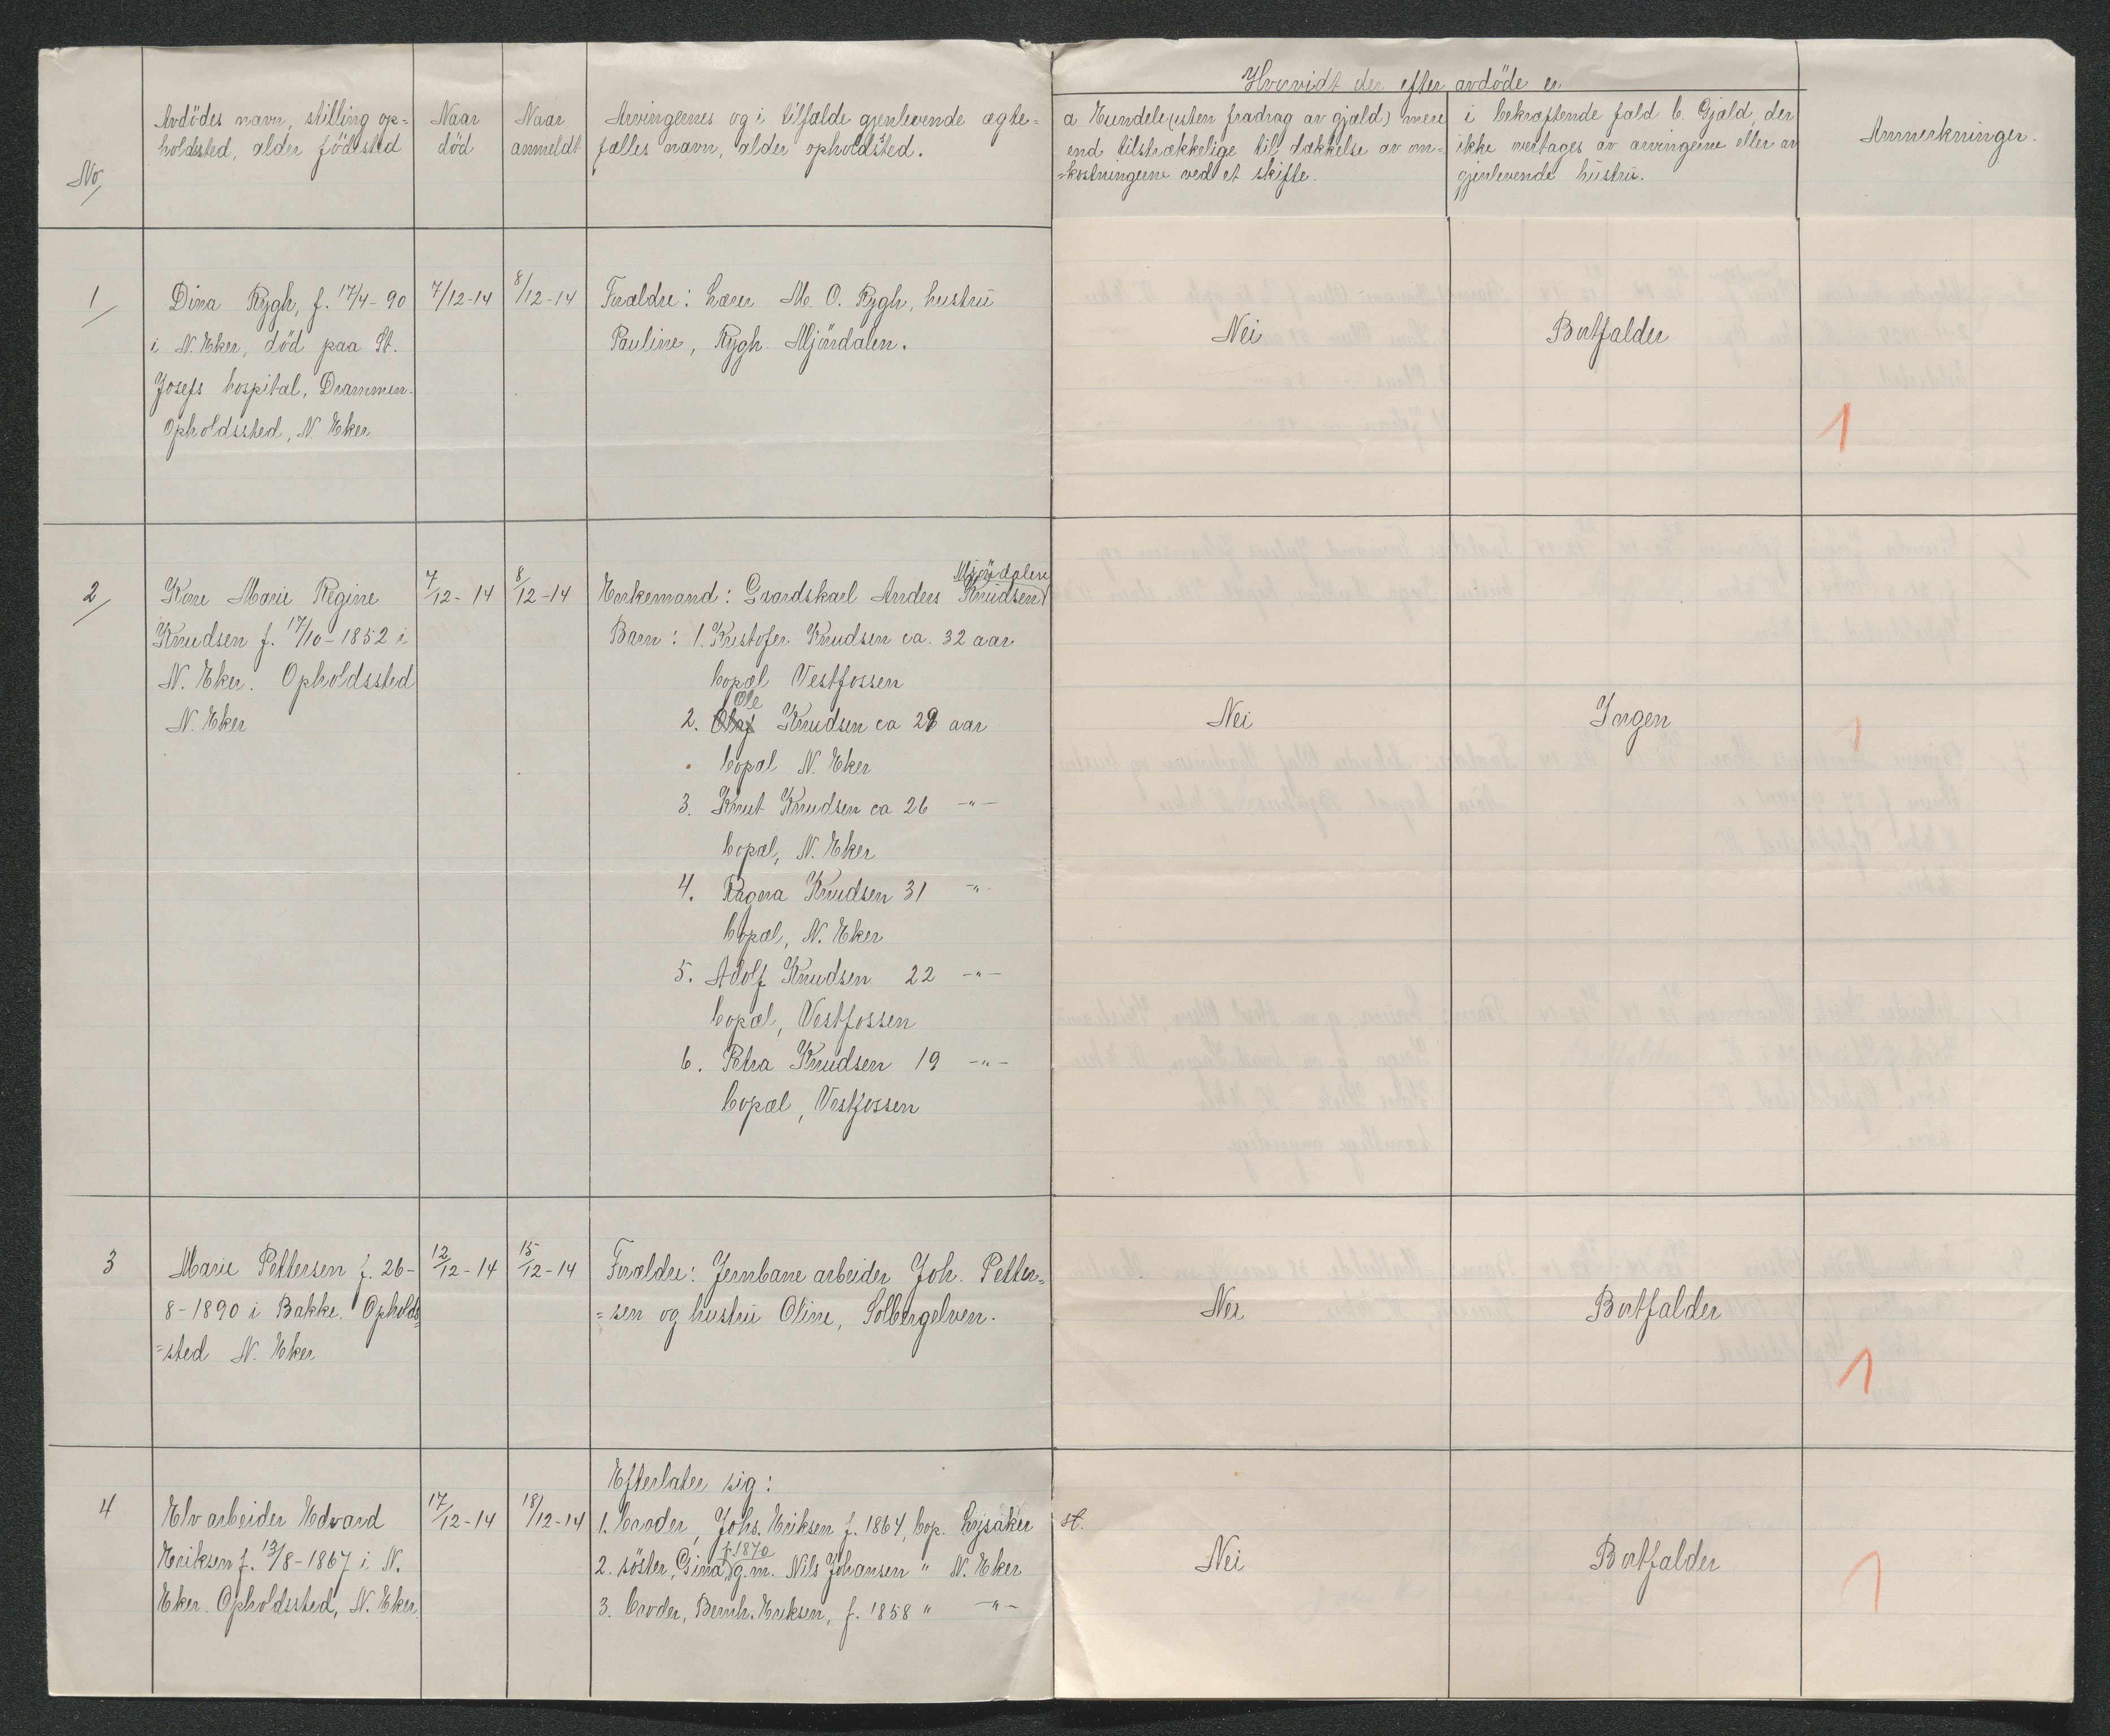 Hvorvidt der efter avdöde er
No
Avdödes navn, stilling op=
holdsted, alder födested
Naar
död
Naar
anmeldt
Arvingernes og i tilfælde gjenlevende ægte=
fælles navn, alder opholdsted.
a Eiendele (uten fradrag av gjæld) mere
end tilstrækkelige til dækkelse av om=
=kostningerne ved et skifte.
i bekræftende fald b. Gjæld, der
ikke overtages av arvingerne eller av
gjenlevende hustru.
Anmerkninger.
1/
Dina Rygh, f. 17/4-90
i N. Eker, död paa St.
Josefs hospital, Drammen.
Opholdssted, N. Eker
7/12-14
8/12-14
Forældre: Lærer M. O. Rygh, hustru
Pauline, Rygh. Mjöndalen.
Nei
Bortfalder
1
2/
Kone Marie Regine
Knudsen f. 17/10-1852 i
N. Eker. Opholdssted
N. Eker
7/12-14
8/12-14
Mjöndalen
Enkemand: Gaardskarl Anders Knudsen
Barn: 1. Kristofer Knudsen ca. 32 aar
bopæl Vestfossen
Ole
2. Olaf Knudsen ca 29 aar
bopæl N. Eker
3. Knut Knudsen ca 26 -"-
bopæl, N. Eker
4. Ragna Knudsen 31 -"-
bopæl, N. Eker
5. Adolf Knudsen 22 -"-
bopæl, Vestfossen
6. Petra Knudsen 19 -"-
bopæl, Vestfossen
Nei
Ingen
1
3
Marie Pettersen f. 26-
8-1890 i Bakke. Opholds=
=sted N. Eker
12/12-14
15/12-14
Forældre: Jernbanearbeider Joh. Petter=
=sen og hustru Oline, Solbergelven.
Nei
Bortfalder
1
4
Elvarbeider Edvard
Eriksen f. 13/8-1867 i N.
Eker. Opholdssted, N. Eker.
17/12-14
18/12-14
Efterlater sig:
1. broder, Johs. Eriksen f. 1864, bop. Lysaker st.
f. 1870
2. söster, Gina, g.m. Nils Johansen " N. Eker
3. broder, Bernh. Eriksen, f. 1858 " -"-
Nei
Bortfalder
1